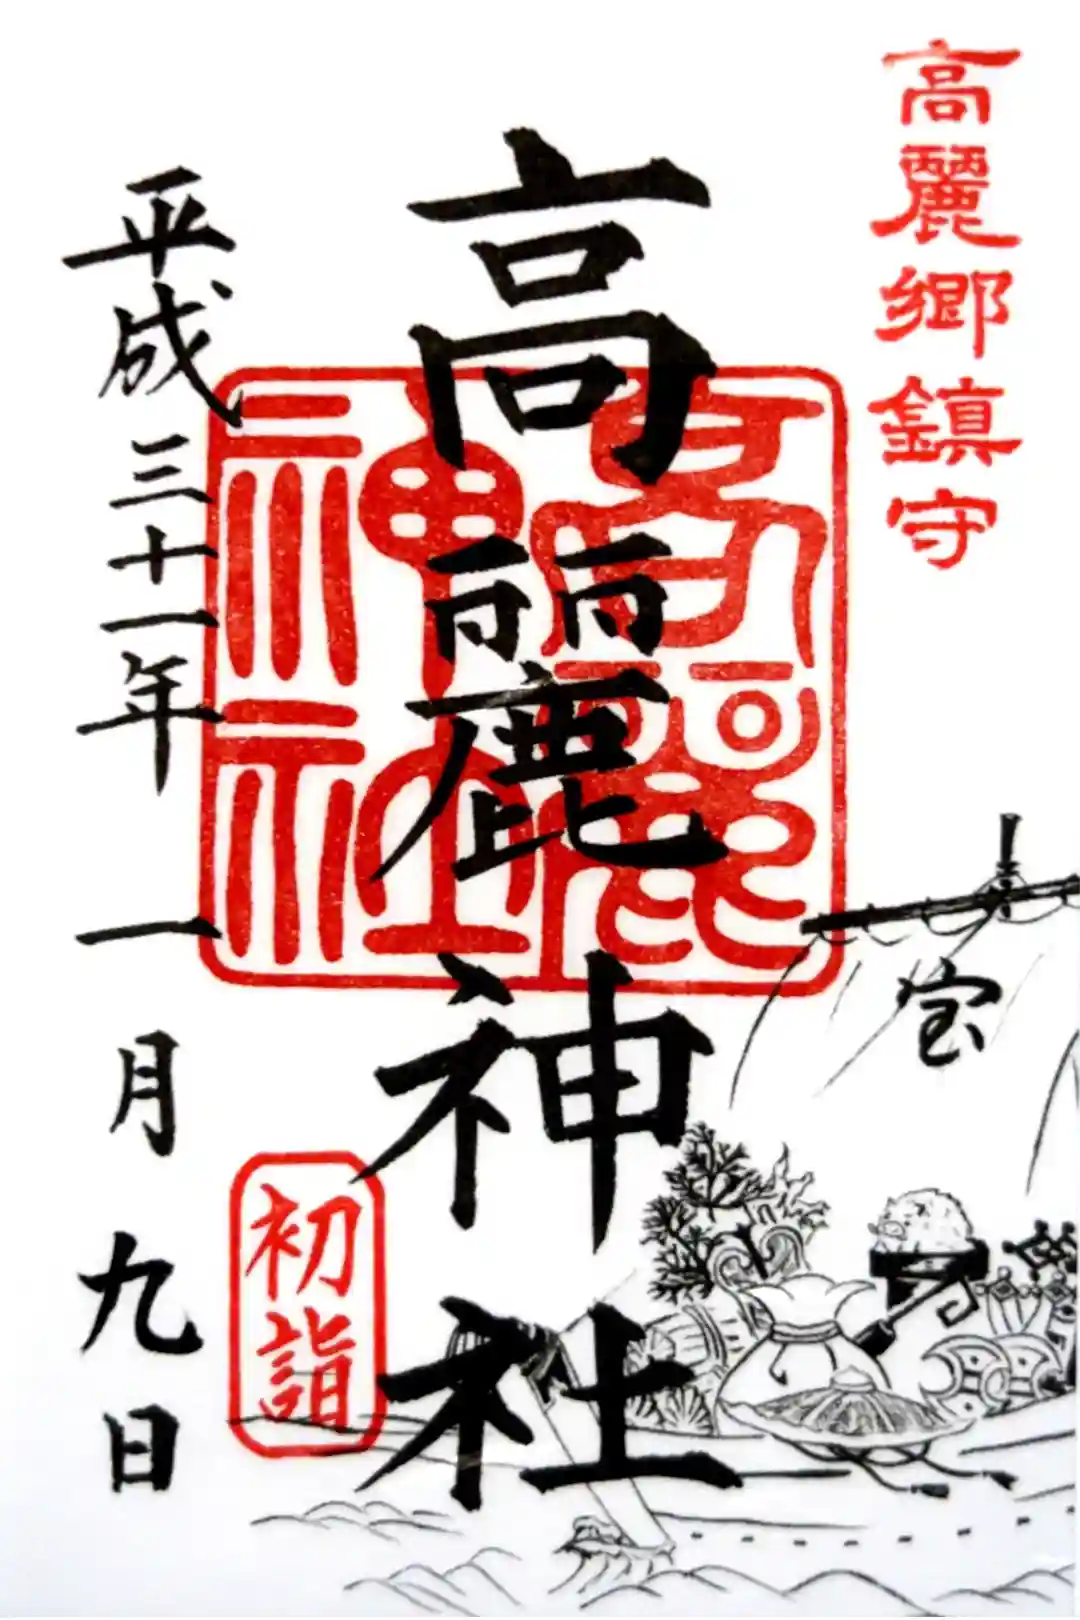 高麗郷鎮守
高麗神社
高麗神社
初詣
平成三十一年一月九日
宝